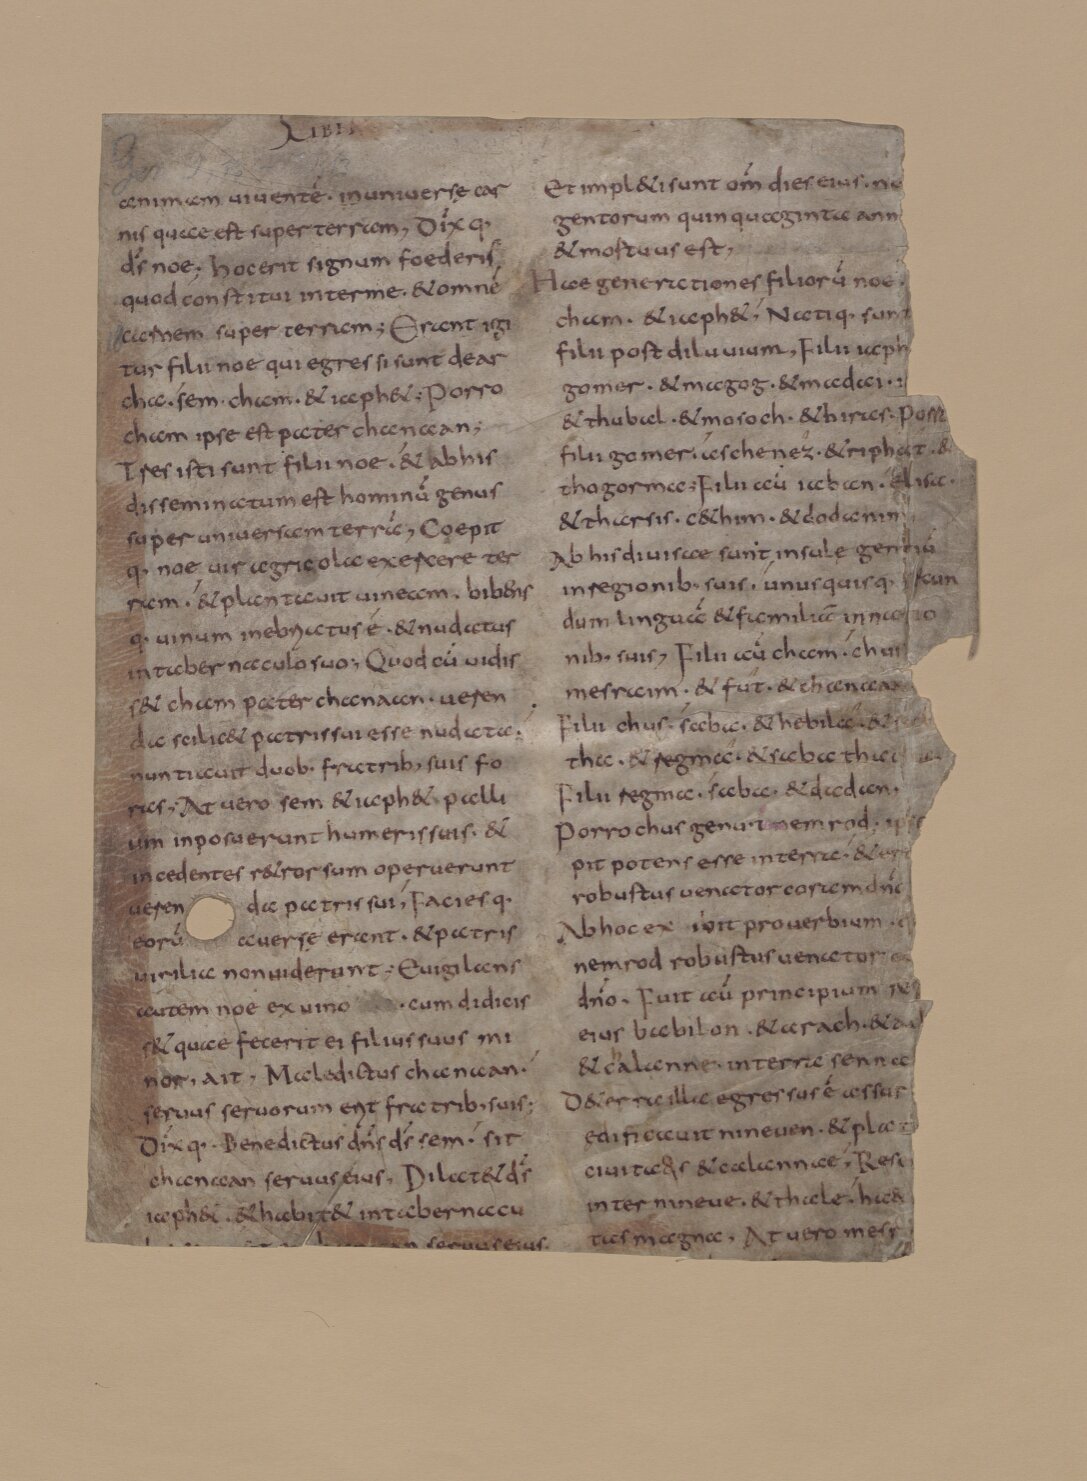 LIBI
animam uiuentē· in uniuersę car
nis quae est super terram, Dix̄ q·
ds̄ noe; hoc erit signum foederis
quod constitui inter me· & omnē
carnem super terram; Erant igi
tur filii noe qui egressi sunt de ar
cha· sem· cham· & iaph&; Porro
cham ipse est pater chanaan;
Tres isti sunt filii noe· & ab his
disseminatum est hominū genus
super uniuersam terrā, Coepit
q· noe uir agricola exercere ter
ram· & plantauit uineam· bibens
q· uinum inebriatus ē· & nudatus
in tabernaculo suo, Quod cū uidis
s& cham pater chanaan· ueren
da scilic& patris sui esse nudata·
nuntiauit duob· fratrib, suis fo
ras, At uero sem & iaph& palli
um inposuerunt humeris suis· &
incedentes r&rorsum operuerunt
ueren da patris sui, Facies q·
eorū auersę erant· & patris
uirilia non uiderunt; Euigilans
autem noe ex uino · cum didicis
s& quae fecerit ei filius suus mi
nor, ait, Maledictus chanaan·
seruus seruorum erit fratrib· suis;
Dix̄ q· Benedictus dn̄s ds̄ sem· sit
chanaan seruus eius, Dilat& ds̄
iaph&· & habit& in tabernacu
seruus eius·
Et impl&i sunt om̄ dies eius· no
gentorum quinquaginta ann
& mortuus est,
Hae generationes filiorū noe·
cham· & iaph&, Natiq· sunt
filii post diluuium, Filii iaph
gomer· & magog· & madai·
& thubal· & mosoch· & hiras· Porr
filii gomer· aschenez· & riphat· &
thogorma; Filii aū iaban· elisa·
& tharsis· c&him· & dodanim
Ab his diuisae sunt insule gentiū
in regionib· suis· unusquisq· secun
dum linguā & familiā in natio
nib· suis, Filii aū cham· chus
mesraim· & fut· & chanaan
Filii chus· saba· & hebila· &
tha· & regma· & sabatha
Filii regma· saba· & dadan,
Porro chus genuit nemrod· ipse
pit potens esse in terra· & er
robustus uenator coram dn̄o
Ab hoc ex iuit prouerbium·
nemrod robustus uenator
dn̄o· Fuit aū principium reg
eius babilon· & arach· &
& calanne· in terra senna
De terra illa egressus ē assur
edificauit nineuen· & pla
ciuitatis & calannae, Rese
inter nineue· & thale· haec
tas magna, At uero mesr